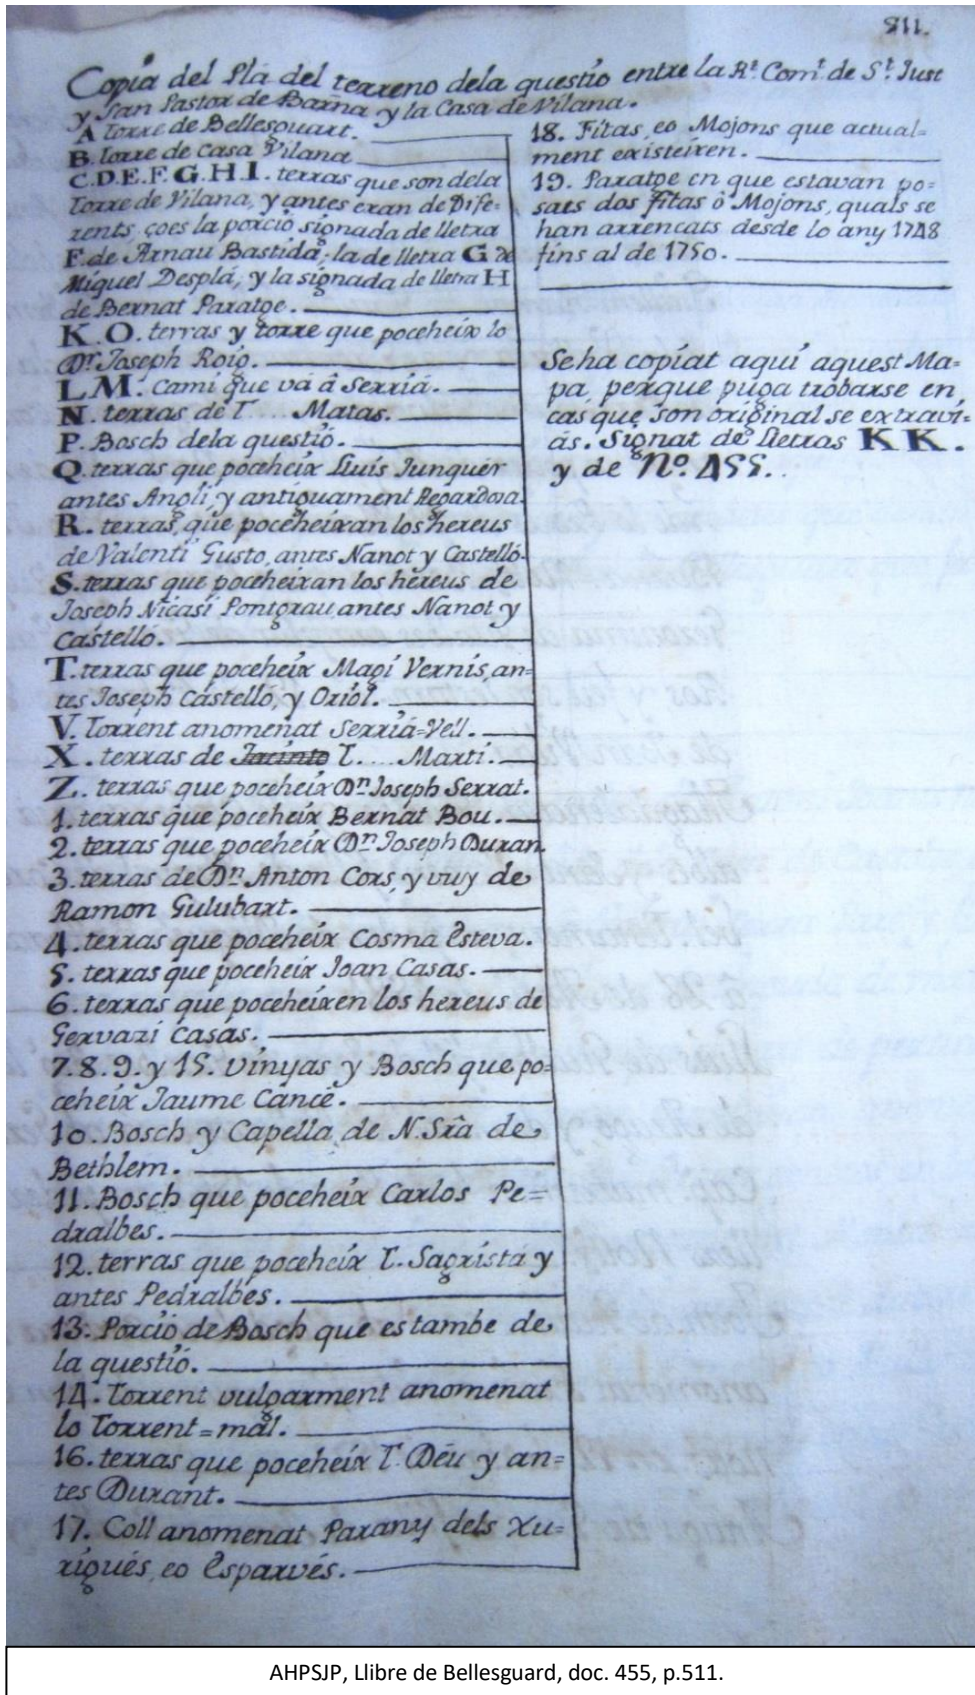 511.
Copia del Plá del terreno dela questio entre la Rt. Comt. de St. Just
y San Pastor de Barña y la Casa de Vilana.
A Torre de Bellesguart.
B. Torre de Casa Vilana
C. D. E. F. G. H. I. terras que son dela
Torre de Vilana, y antes eran de Dife-
rents, çoes la porció signada de lletra
F. de Arnau Bastida; la de lletra G de
Miquel Desplá, y la signada de lletra H
de Bernat Paratge.
K. O. terras y torre que poceheix lo
Dr. Joseph Roig.
L M. Cami que vá â Serriá.
N. terras de T.... Matas.
P. Bosch dela questió.
Q. terras que poceheix Lluís Junquer
antes Angli, y antiguament
R. terras, que poceheixan los hereus
de Valentí Gusto, antes Nanot y Castelló.
S. terras que poceheixan los hereus de
Joseph Nicasi Pontgrau, antes Nanot y
Castelló.
T. terras que poceheix Magí Vernis, an=
tes Joseph Castelló, y Oriol.
V. Torrent anomenat Serriá=Vell.
X. terras de Jacinto T.... Martí.
Z. terras que poceheix Dn. Joseph Serrat.
1. terras que poceheix Bernat Bou.
2. terras que poceheix Dn. Joseph Duran.
3. terras de Dn. Anton Cors, y vuy de
Ramon Gulubart.
4. terras que poceheix Cosma Esteva.
5. terras que poceheix Joan Casas.
6. terras que poceheixen los hereus de
Gervazi Casas.
7. 8. 9. y 15. Vinyas y Bosch que po=
ceheix Jaume Cancé.
10. Bosch y Capella de N. Srâ de
Bethlem.
11. Bosch que poceheix Carlos Pe=
dralbes.
12. terras que poceheix T. Sagristá y
antes Pedralbes.
13. Porció de Bosch que es tambe de
la questió.
14. Torrent vulgarment anomenat
lo Torrent=mal.
16. terras que poceheix T. Déu y an=
tes Durant.
17. Coll anomenat Parany dels Xu=
rigués, eo Esparvés.
18. Fitas, eo Mojons que actual=
ment existeixen.
19. Paratge en que estavan po=
sats dos fitas ò Mojons, quals se
han arrencats desde lo any 1748
fins al de 1750.
Se ha copíat aquí aquest Ma=
pa, perque puga trobarse en
cas que son original se extravi=
ás. Signat de lletras KK.
y de Nº. 455.
AHPSJP, Llibre de Bellesguard, doc. 455, p.511.